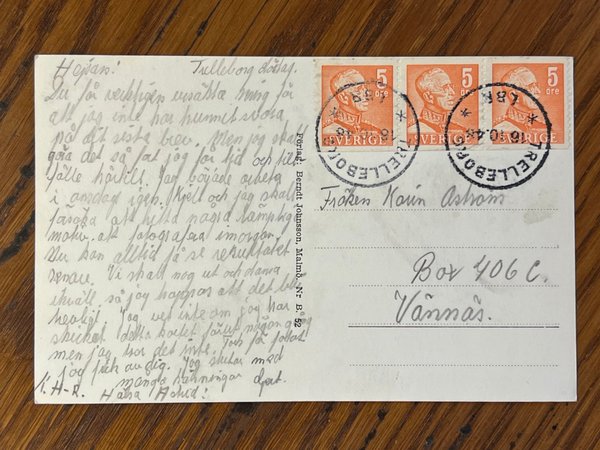 Hejsan! Trelleborg lördag.
Du får verkligen ursäkta mig för
att jag inte har hunnit svara
på ditt sista brev. Men jag skall
göra det så fort jag får tid och till-
fälle därtill. Jag började arbeta
i onsdag igen. Kjell och jag skall
försöka att hitta några lämpliga
motiv att fotografera imorgon.
Du kan alltid få se resultatet
senare. Vi skall nog ut och dansa
ikväll så jag hoppas att det blir
hevligt. Jag vet inte om jag har
skickat detta kortet förut någon gång
men jag tror det inte. Tack för kortet
jag fick av dig. Jag slutar med
många hälsningar
K. H-R. Hälsa Astrid!
Förlag: Berndt Johnsson, Malmö. Nr B. 52
5 öre SVERIGE
5 öre SVERIGE
5 öre SVERIGE
TRELLEBORG
16.10.48
TRELLEBORG
16.10.48
Fröken Karin Åström
Box 406 C.
Vännäs.